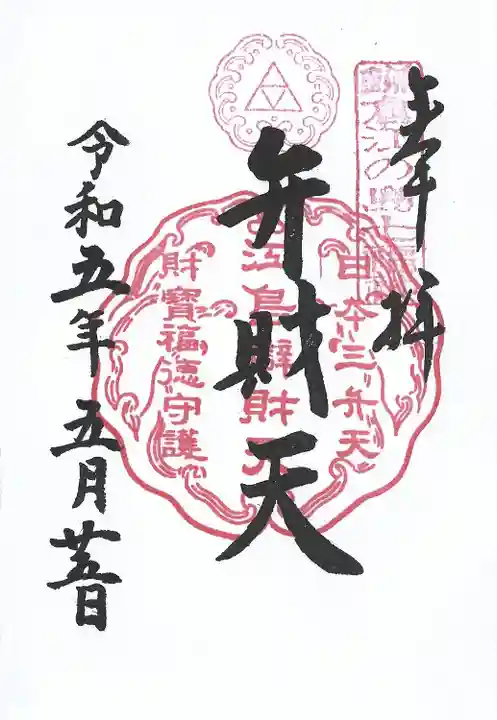 奉拝
弁財天
令和五年五月廿五日
日本三弁天
江島辨財天
財寶福徳守護